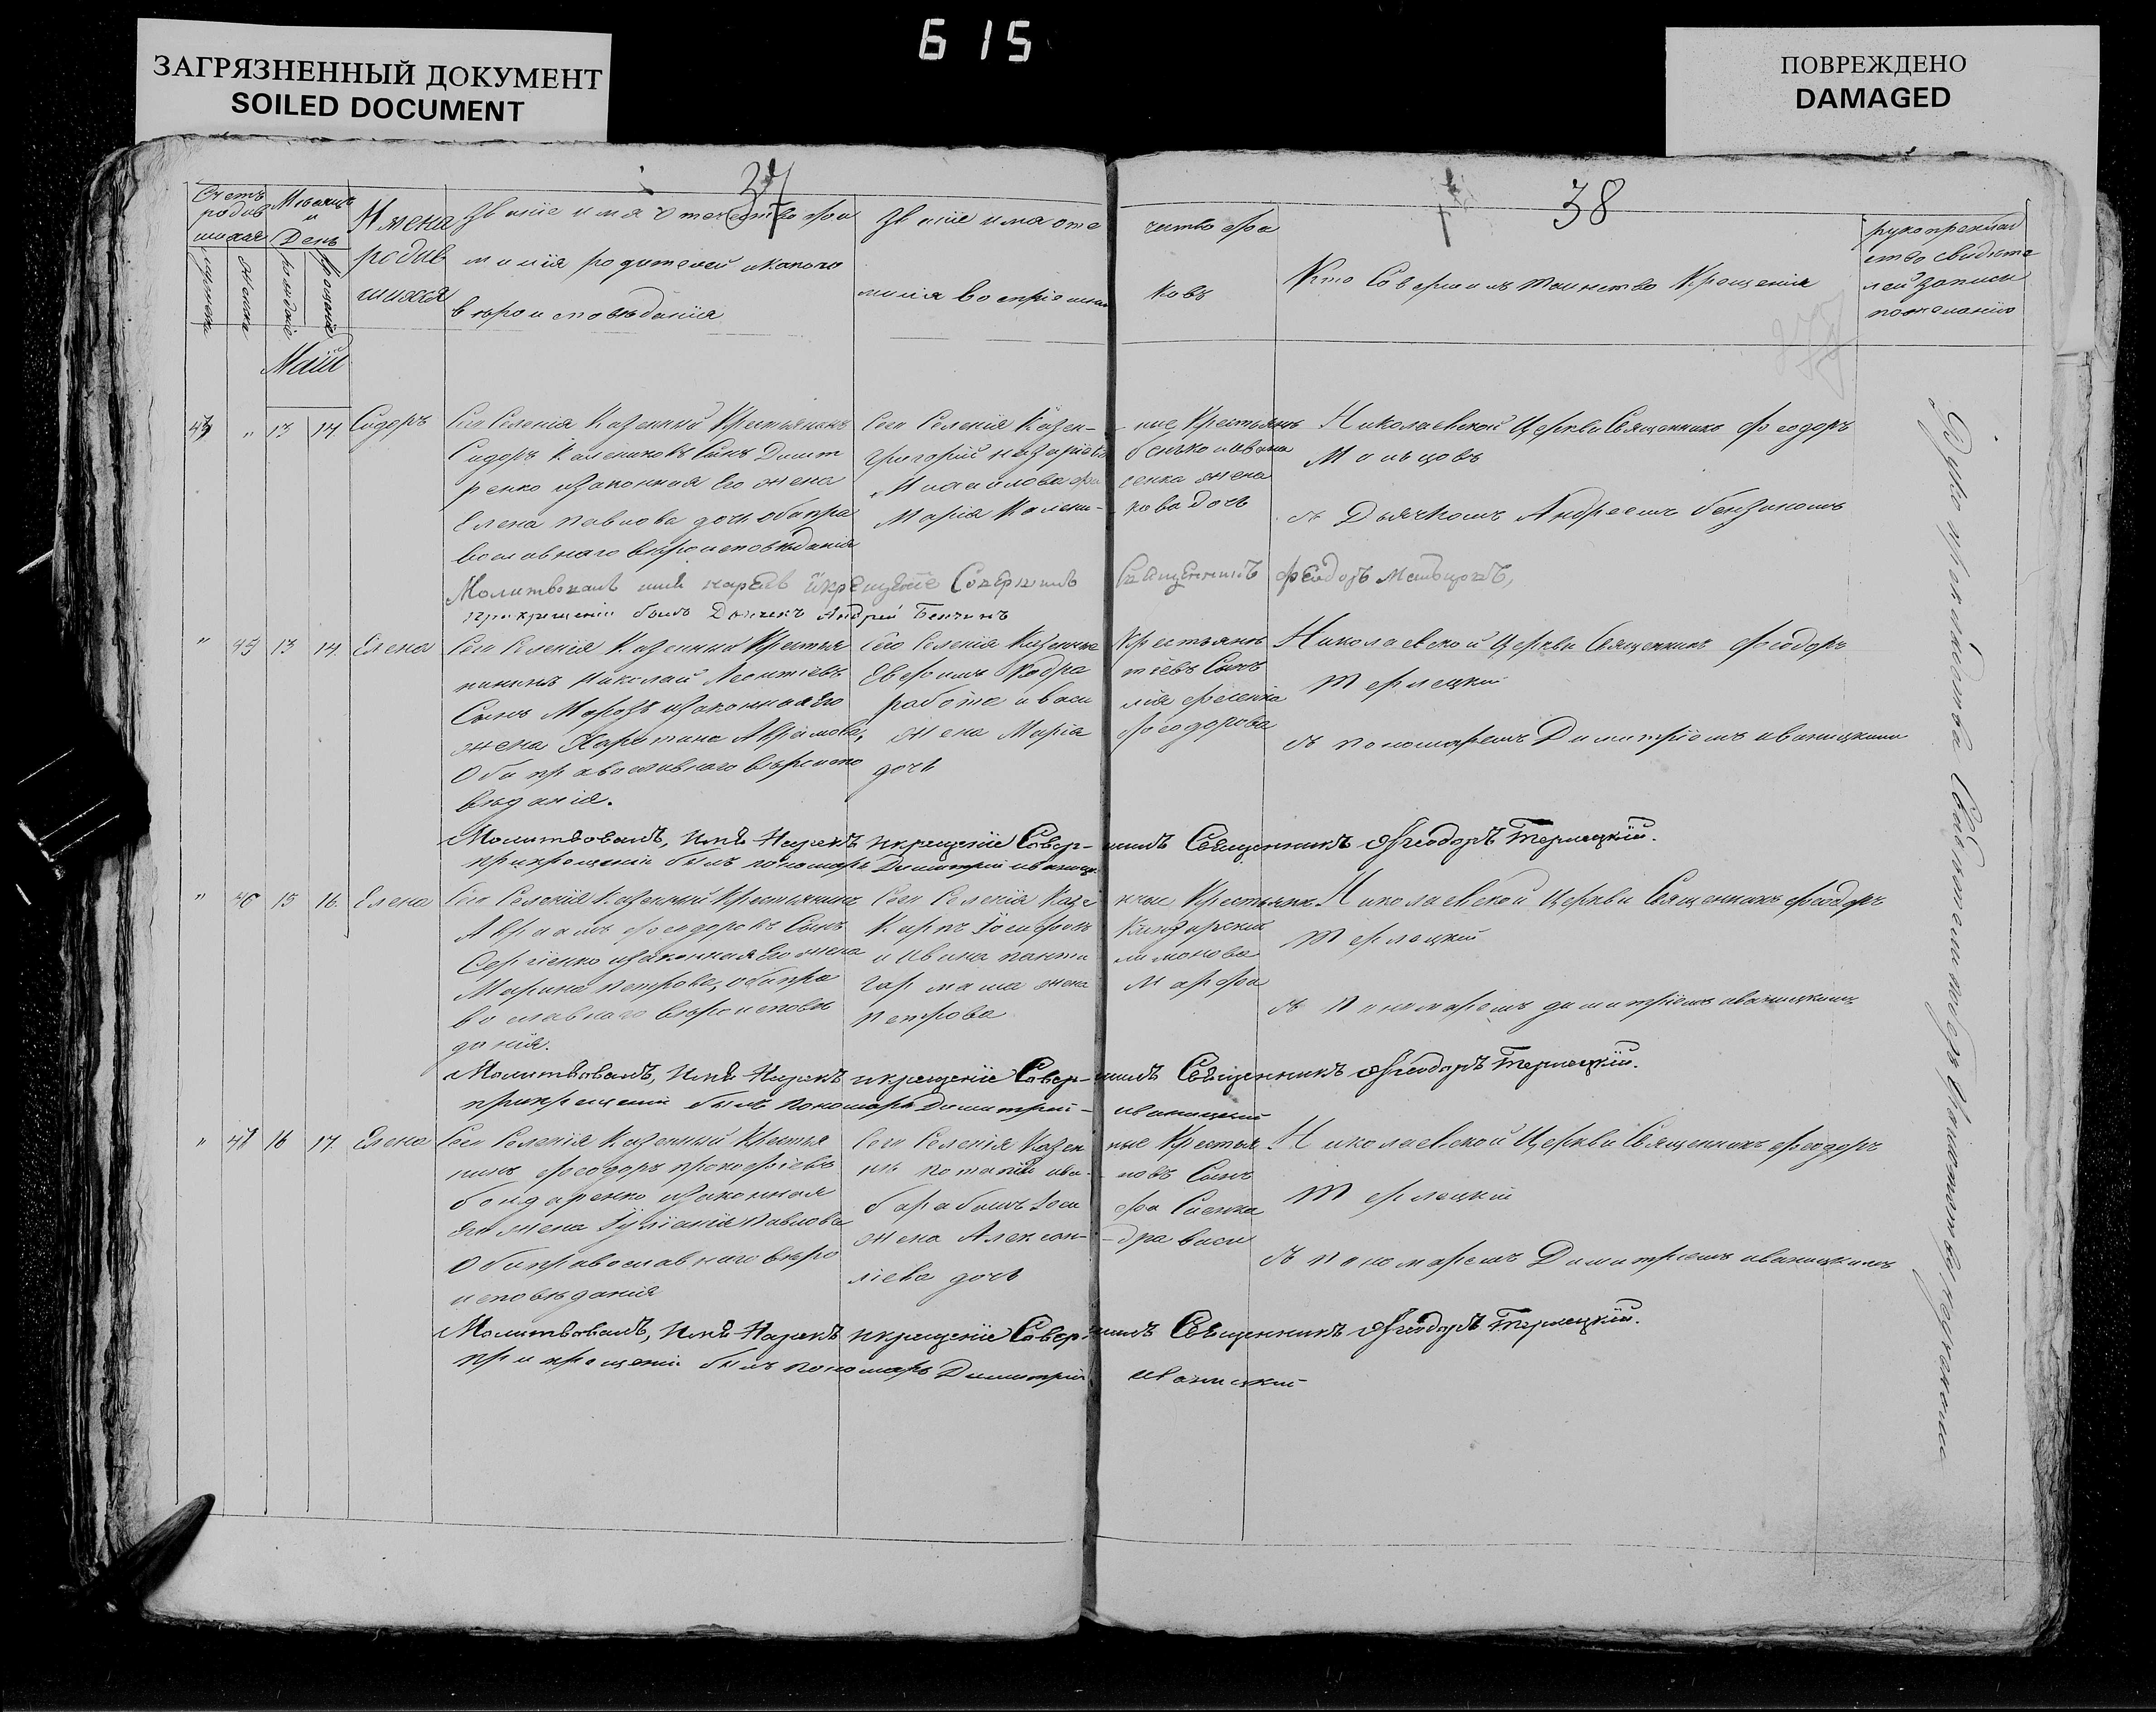 615
ЗАГРЯЗНЕННЫЙ ДОКУМЕНТ
SOILED DOCUMENT
ПОВРЕЖДЕНО
DAMAGED
37
38
Счетъ родив шихся
Мѣсяцъ и День
Имена родив шихся
Званіе имя отечество фа
милія родителей и какого
вѣроисповѣданія
Званіе имя оте чество фа
милія воспріемни ковъ
Кто Совершилъ таинство Крещенія
рукоприклад
ство свидѣте
лей записи
пожеланію
Маій
13 14 Сидоръ
Сего Селенія Казенный Крестьянинъ
Сидоръ Калениковъ Сынъ Дмит
ренко изаконная Его жена
Елена Павлова дочь оба пра
вославнаго вѣроисповѣданія
Сего Селенія Казен- ные Крестьянъ
Григорій
жена
Марія Калени- кова дочь
Николаевской Церкви Священникъ Феодоръ
Мальцовъ
съ Дьячкомъ Андреемъ Бензиномъ
Молитвовалъ имя нарекъ икрещеніе Совершилъ Священникъ Феодоръ Мальцовъ,
при крещеніи былъ Дьячекъ Андрей Бензинъ
" 45 13 14. Елена
Сего Селенія Казенный Крестья
нинъ Николай Леонтіевъ
Сынъ Морозъ изаконная Его
жена Харитина Авраамова,
Оба православнаго вѣроиспо
вѣданія.
Сего Селенія Казенные Крестьянъ
Евфимъ Кодра тіевъ Сынъ
жена Марія Феодорова
дочь
Николаевской Церкви Священникъ Феодоръ
Терлецкій
съ пономаремъ Димитріемъ иваницкимъ
Молитвовалъ, Имя Нарекъ икрещеніе Совер- шилъ Священникъ Ѳеодоръ Терлецкій.
при крещеніи былъ пономарь Димитрій иваницк
" 46 15 16. Елена
Сего Селенія Казенный Крестьянинъ
Авраамъ Феодоровъ Сынъ
Сергіенко изаконная Его жена
Марина Петрова, оба пра
вославнаго вѣроисповѣ
данія.
Сего Селенія Казе нные Крестьянъ
Карпъ Іосифовъ
и ивана панте лимонова
гармаша жена Марфа
Петрова
Николаевской Церкви Священникъ Феодоръ
Терлецкій
съ Пономаремъ димитріемъ иваницкимъ
Молитвовалъ, Имя Нарекъ икрещеніе Совер- шилъ Священникъ Ѳеодоръ Терлецкій.
при крещеніи былъ Пономарь Димитрій- иваницкій
" 47 16 17. Елена
Сего Селенія Казенный Крестья
нинъ Феодоръ прокофіевъ
бондаренко изаконная
его жена Іуліанія Павлова
Оба православнаго вѣро
исповѣданія
Сего Селенія Казен ные Крестья
нъ Потапій ива- новъ Сынъ
барабашъ Іоси фа
жена Алексан- дра васи
ліева дочь
Николаевской Церкви Священникъ Феодоръ
Терлецкій
съ пономаремъ Димитріемъ иваницкимъ
Молитвовалъ, Имя Нарекъ икрещеніе Совер- шилъ Священникъ Ѳеодоръ Терлецкій.
при крещеніи былъ пономарь Димитрій иваницкій
Рукоприкладства Свидѣтелей